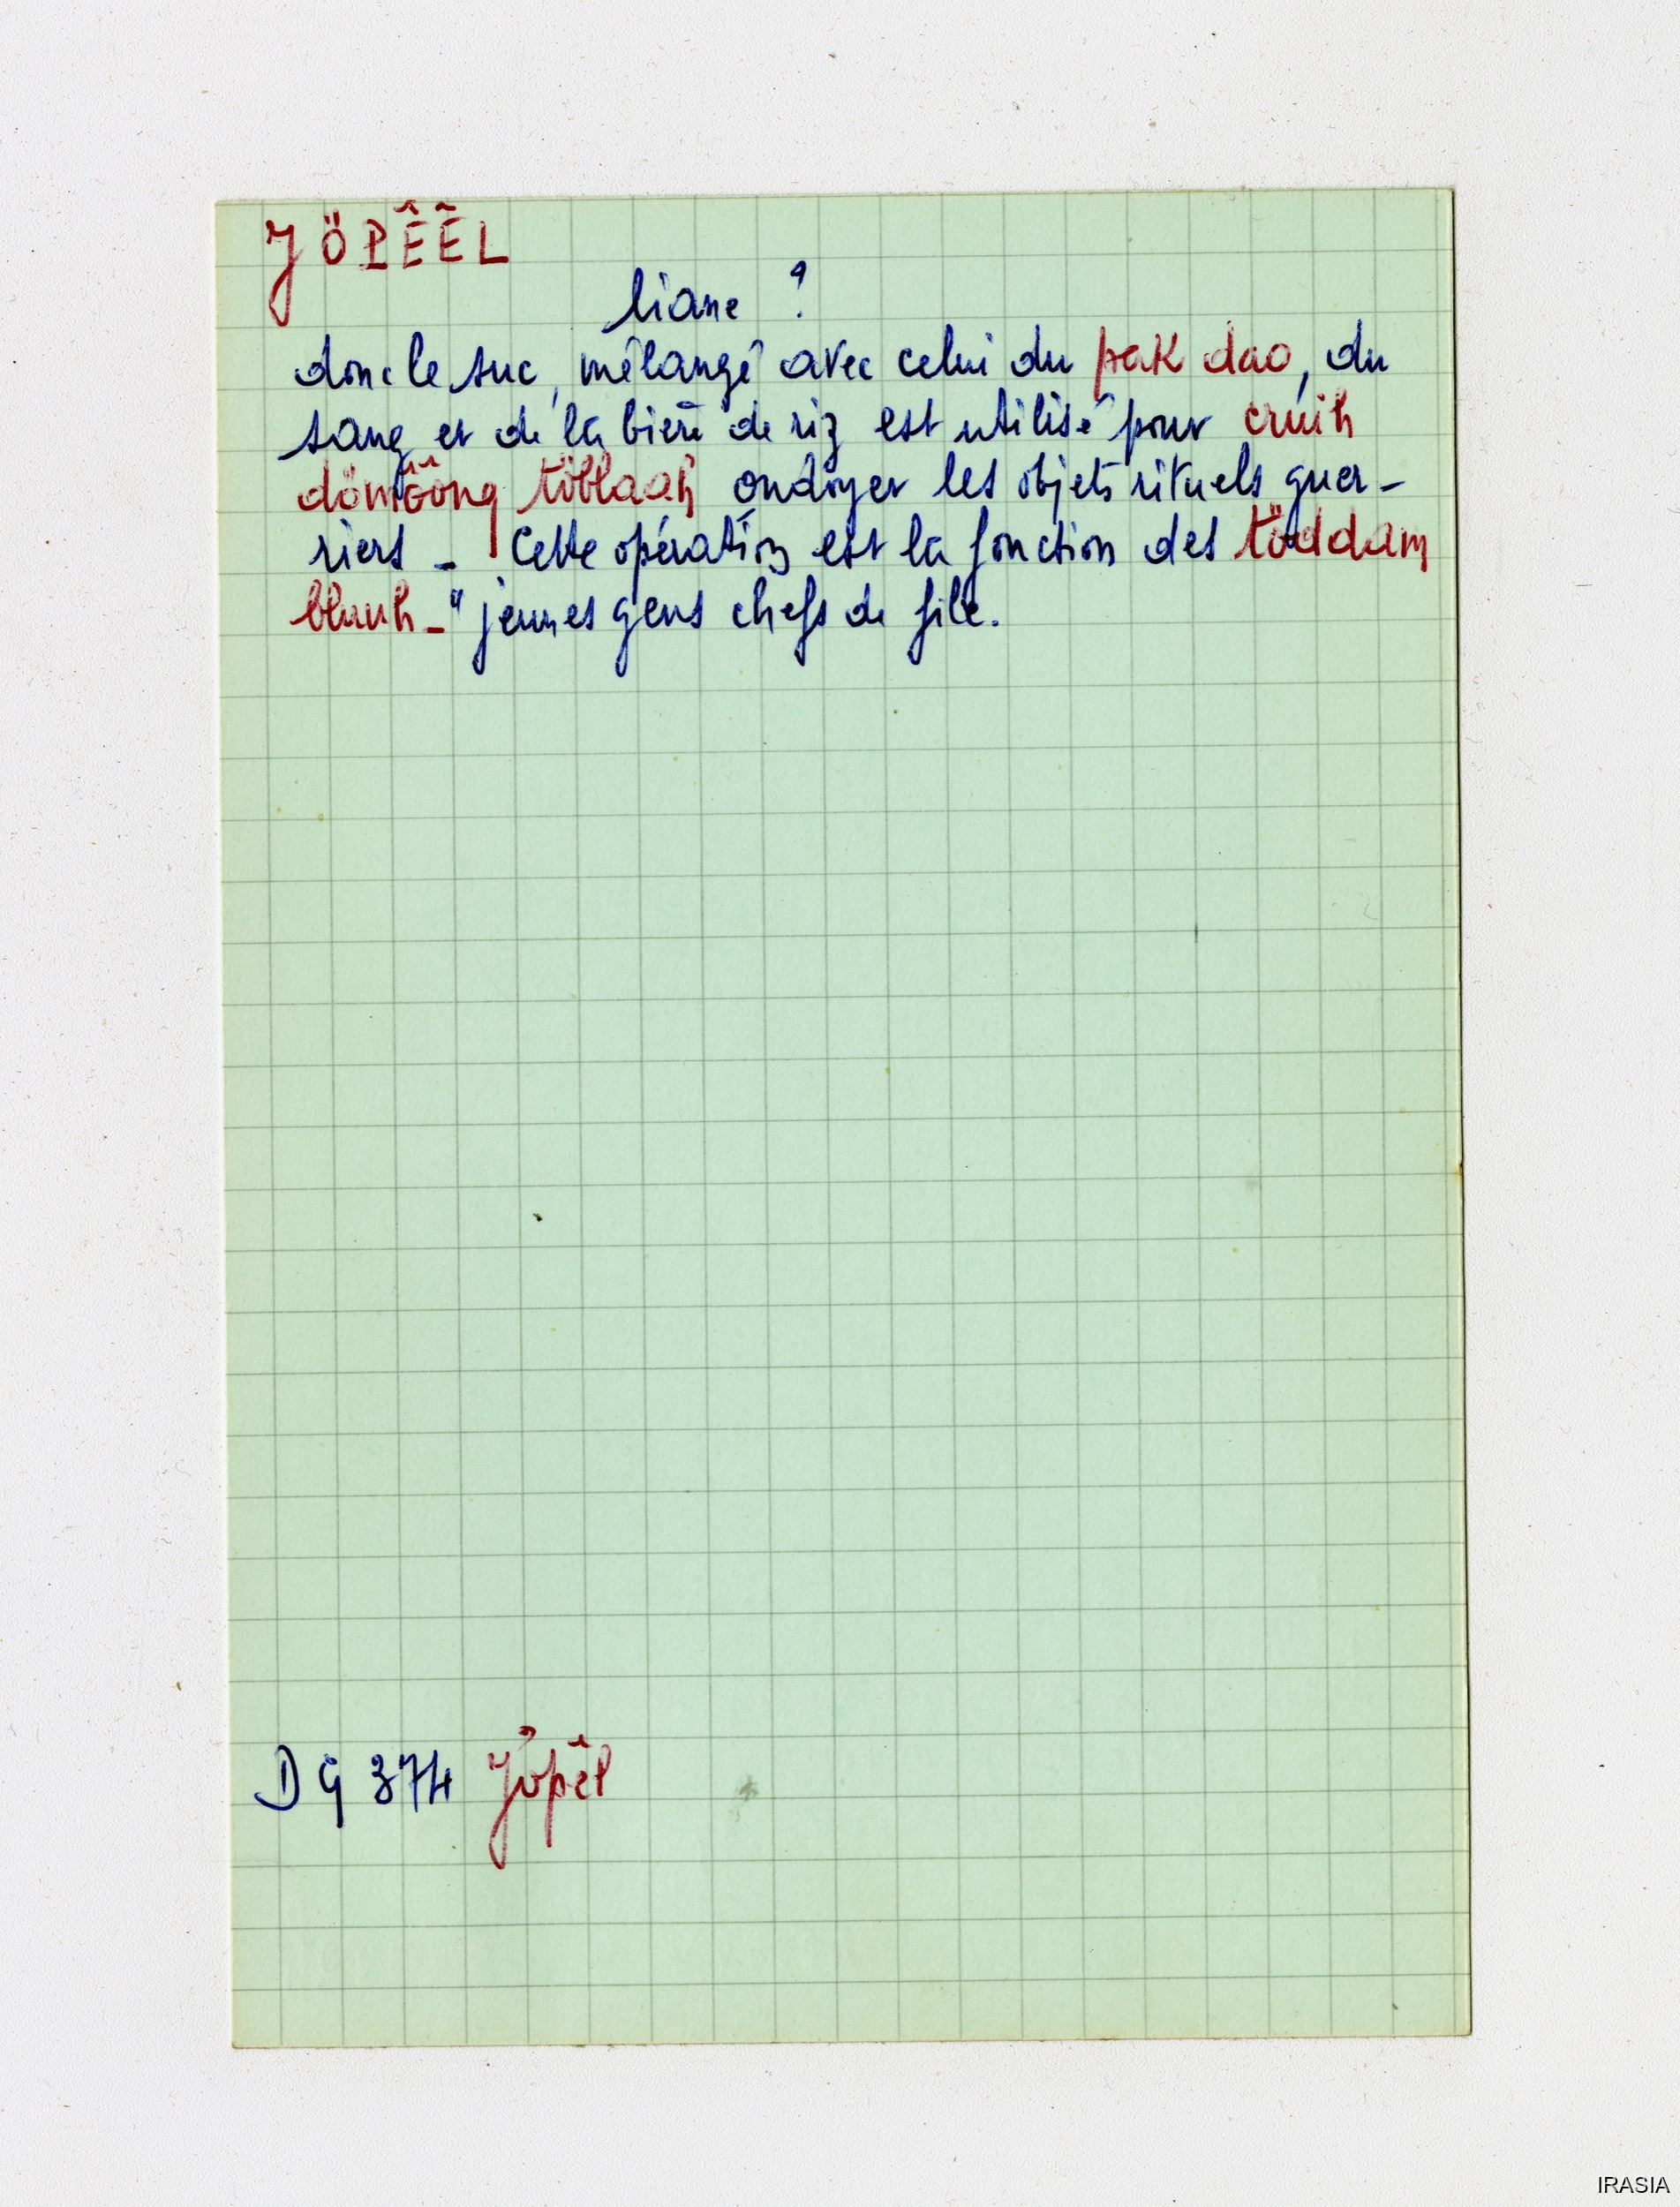 JÖPÊÊL
liane ?
donc le suc, mélangé avec celui du pak dao, du
sang et de la bière de riz est utilisé pour cruih
dömôông töblaah ondoyer les objets rituels guer-
riers _ Cette opération est la fonction des töddam
bluuh _ "jeunes gens chefs de file.
DG 374 Jöpêl
IRASIA